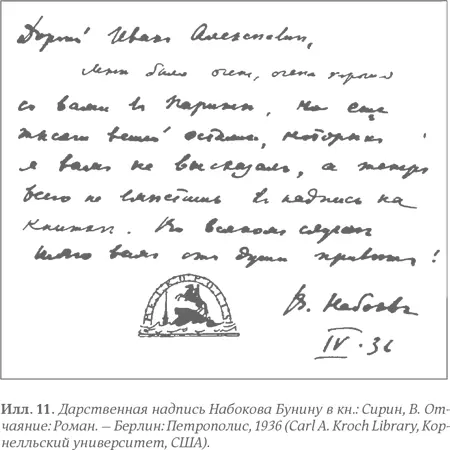 Дорогой Иванъ Алексѣевичъ,
мнѣ было очень, очень хорошо
съ вами въ Парижѣ, но еще
тысяча вещей которыхъ
я вамъ не высказалъ, а теперь
всего не вмѣстишь въ надпись на
Во всякомъ случаѣ
шлю вамъ отъ души привѣтъ!
В. Набоковъ
IV·36
Илл. 11. Дарственная надпись Набокова Бунину в кн.: Сирин, В. От-
чаяние: Роман. — Берлин: Петрополис, 1936 (Carl A. Kroch Library, Кор-
нелльский университет, США).